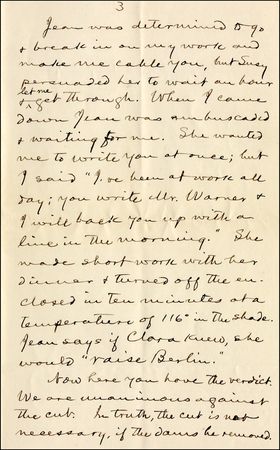 3
Jean was determined to go
& break in on my work and
make me cable you, but Susy
persuaded her to wait an hour
& let me get through. When I came
down Jean was ambuscaded
& waiting for me. She wanted
me to write you at once; but
I said "I've been at work all
day; you write Mr. Warner &
I will back you up with a
line in the morning." She
made short work with her
dinner & turned off the en-
closed in ten minutes at a
temperature of 116° in the shade.
Jean says if Clara knew, she
would "raise Berlin."
Now here you have the verdict.
We are unanimous against
the cut. In truth, the cut is not
necessary, if the dams be removed.